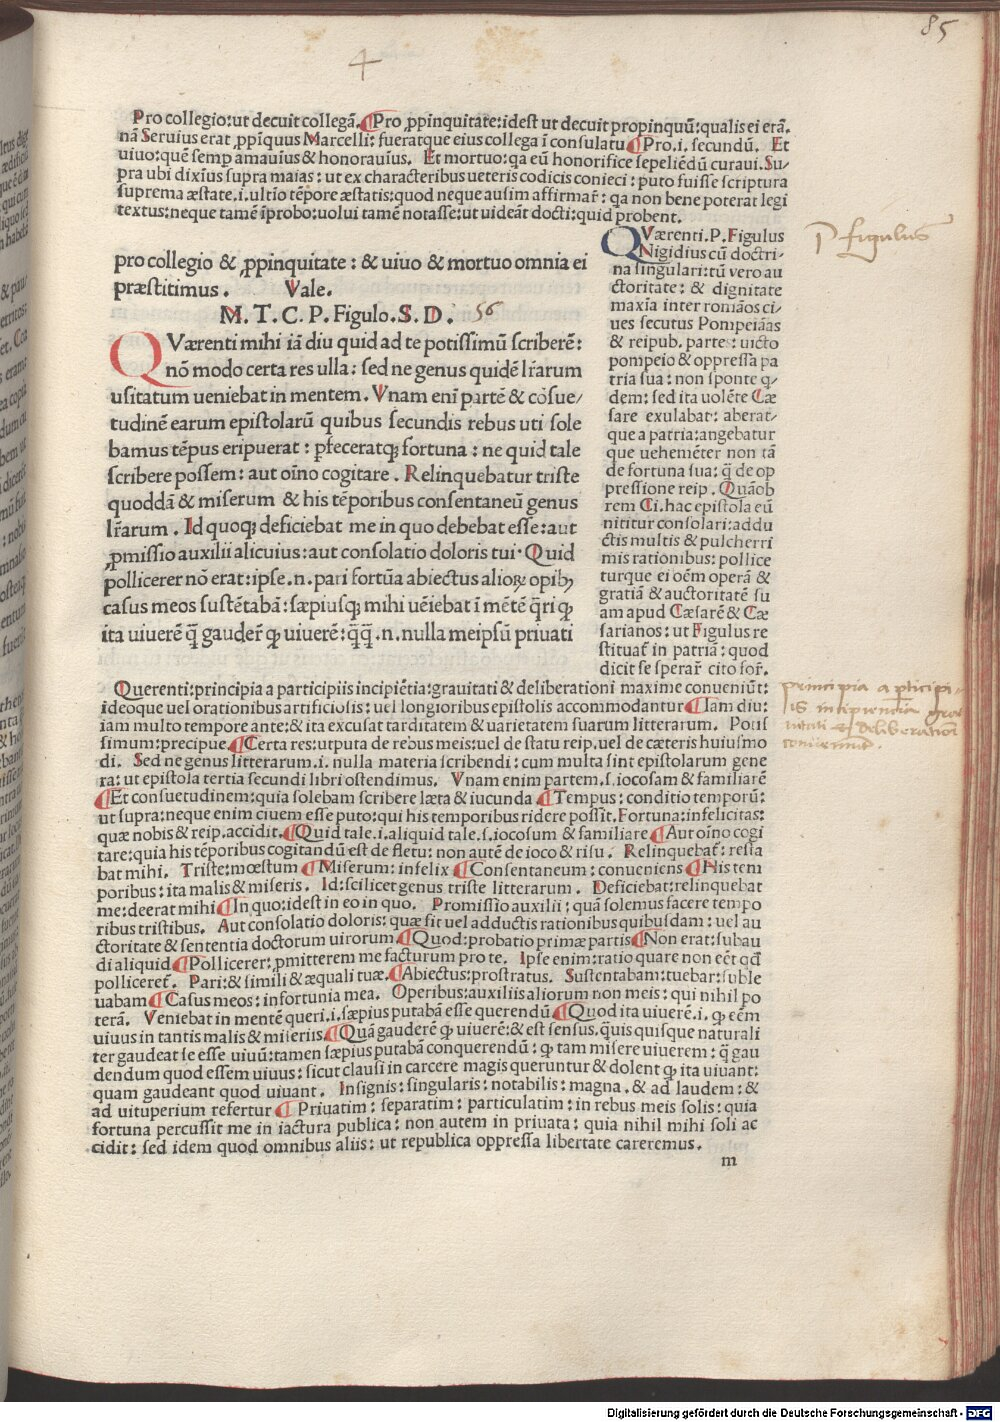 85
4
Pro collegio:ut decuit collegā.¶Pro ꝓpinquitate:idest ut decuit propinquū:qualis ei erā.
nā Seruius erat ꝓpīquus Marcelli: fueratque eius collega ī consulatu¶Pro.i. secundū. Et
uiuo:quē semp amauīus & honorauīus. Et mortuo:qa eū honorifice sepeliēdū curaui.Su-
pra ubi dixīus supra maias: ut ex characteribus ueteris codicis conieci: puto fuisse scriptura
suprema æstate.i.ultīo tēpore æstatis:quod neque ausim affirmar̄: qa non bene poterat legi
textus:neque tamē īprobo:uolui tamē notasse:ut uideāt docti:quid probent.
pro collegio & ꝓpinquitate: & uiuo & mortuo omnia ei
præstitimus. Vale.
M. T. C. P. Figulo. S. D. 56
QVærenti mihi iā diu quid ad te potissimū scriberē:
nō modo certa res ulla: sed ne genus quidē lr̄arum
usitatum ueniebat in mentem. Vnam enī partē & cōsue/
tudinē earum epistolarū quibus secundis rebus uti sole
bamus tēpus eripuerat: pfeceratqȝ fortuna: ne quid tale
scribere possem: aut oīno cogitare. Relinquebatur triste
quoddā & miserum & his tēporibus consentaneū genus
lr̄arum. Id quoqȝ deficiebat me in quo debebat esse: aut
ꝓmissio auxilii alicuius: aut consolatio doloris tui. Quid
pollicerer nō erat: ipse.n. pari fortūa abiectus alioꝝ opibȝ
casus meos sustētabā: sæpiusqȝ mihi uēiebat ī mētē q̄ri ꝙ
ita uiuerē q̄ gauder̄ ꝙ uiuerē: q̄q̄.n. nulla meipsū priuati
P figulus
QVærenti.P.Figulus
Nigidius cū doctri-
na singulari:tū vero au
ctoritate: & dignitate
maxīa inter romāos ci-
ues secutus Pompeiāas
& reipub. parte: uicto
pompeio & oppressa pa
tria sua: non sponte q-
dem: sed ita uolēte Cæ
sare exulabat: aberat-
que a patria:angebatur
que uehemēter non tā
de fortuna sua: q̄ de op
pressione reip. Quāob
rem Ci. hac epistola eū
nititur consolari:addu
ctis multis & pulcherri
mis rationibus: pollice
turque ei oēm operā &
gratiā & auctoritatē su
am apud Cæsarē & Cæ
sarianos: ut Figulus re
stituat̄ in patriā: quod
dicit se sperar̄ cito for̄.
Querenti:principia a participiis incipiētia:grauitati & deliberationi maxime conueniūt:
ideoque uel orationibus artificiosis: uel longioribus epistolis accommodantur¶Iam diu:
iam multo tempore ante:& ita excusat tarditatem & uarietatem suarum litterarum. Potis
simum:precipue¶Certa res:utputa de rebus meis:uel de statu reip.uel de cæteris huiusmo
di. Sed ne genus litterarum.i. nulla materia scribendi: cum multa sint epistolarum gene
ra: ut epistola tertia secundi libri ostendimus. Vnam enim partem.s.iocosam & familiarē
¶Et consuetudinem:quia solebam scribere læta & iucunda ¶Tempus: conditio temporū:
ut supra:neque enim ciuem esse puto:qui his temporibus ridere possit. Fortuna:infelicitas:
quæ nobis & reip.accidit.¶Quid tale.i.aliquid tale.s.iocosum & familiare¶Aut oīno cogi
tare:quia his tēporibus cogitandū est de fletu: non autē de ioco & risu. Relinquebat̄: resta
bat mihi. Triste:mœstum ¶Miserum: infelix ¶Consentaneum: conueniens¶His tem
poribus: ita malis & miseris. Id:scilicet genus triste litterarum. Deficiebat:relinquebat
me:deerat mihi¶In quo:idest in eo in quo. Promissio auxilii: quā solemus facere tempo
ribus tristibus. Aut consolatio doloris: quæ sit uel adductis rationibus quibusdam: uel au
ctoritate & sententia doctorum uirorum¶Quod:probatio primæ partis¶Non erat:subau
di aliquid¶Pollicerer: ꝓmitterem me facturum pro te. Ipse enim:ratio quare non eēt qd̄
polliceret̄. Pari:& simili & æquali tuæ.¶Abiectus:prostratus. Sustentabam:tuebar:suble
uabam¶Casus meos: infortunia mea. Operibus:auxiliis aliorum non meis: qui nihil po
terā. Veniebat in mentē queri.i.sæpius putabā esse querendū¶Quod ita uiuerē.i. ꝙ eēm
uiuus in tantis malis & miseriis¶Quā gauderē ꝙ uiuerē:& est sensus.q̄uis quisque naturali
ter gaudeat se esse uiuū:tamen sæpius putabā conquerendū: ꝙ tam misere uiuerem: q̄ gau
dendum quod essem uiuus: sicut clausi in carcere magis queruntur & dolent ꝙ ita uiuant:
quam gaudeant quod uiuant. Insignis: singularis: notabilis: magna. & ad laudem: &
ad uituperium refertur ¶Priuatim: separatim: particulatim: in rebus meis solis: quia
fortuna percussit me in iactura publica: non autem in priuata: quia nihil mihi soli ac
cidit: sed idem quod omnibus aliis: ut republica oppressa libertate careremus.
m
principia a pticipi-
is incipiencia grau
itati et deliberationi
conueniunt.
Digitalisierung gefördert durch die Deutsche Forschungsgemeinschaft - DFG